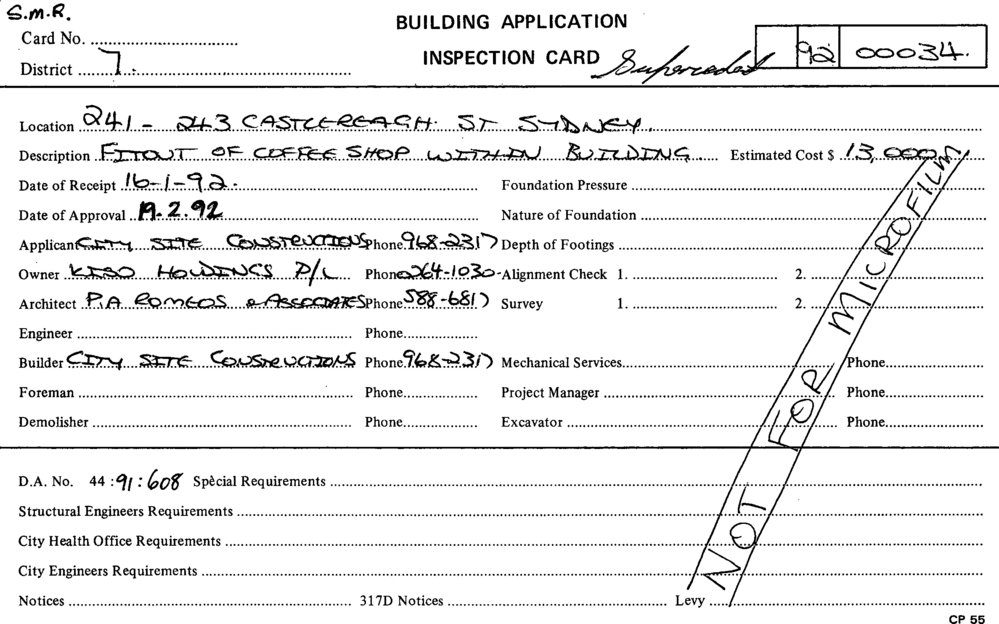 S.M.R.
BUILDING APPLICATION
Card No.
INSPECTION CARD Superceded 92 00034.
District 7.
Location 241 - 243 CASTLEREAGH. ST SYDNEY.
Description FITOUT OF COFFEE SHOP WITHIN BUILDING Estimated Cost $ 13,000
Date of Receipt 16-1-92. Foundation Pressure
Date of Approval 19.2.92 Nature of Foundation
Applicant CITY SITE CONSTRUCTIONS Phone 968-2317 Depth of Footings
Owner KISO HOLDINGS P/L Phone 264-1030 Alignment Check 1. 2.
Architect P.A. ROMEOS & ASSOCIATES Phone 588-6817 Survey 1. 2.
Engineer Phone
Builder CITY SITE CONSTRUCTIONS Phone 968-2317 Mechanical Services Phone
Foreman Phone Project Manager Phone
Demolisher Phone Excavator Phone
NOT FOR MICROFILM
D.A. No. 44 : 91 : 608 Special Requirements
Structural Engineers Requirements
City Health Office Requirements
City Engineers Requirements
Notices 317D Notices Levy
CP 55